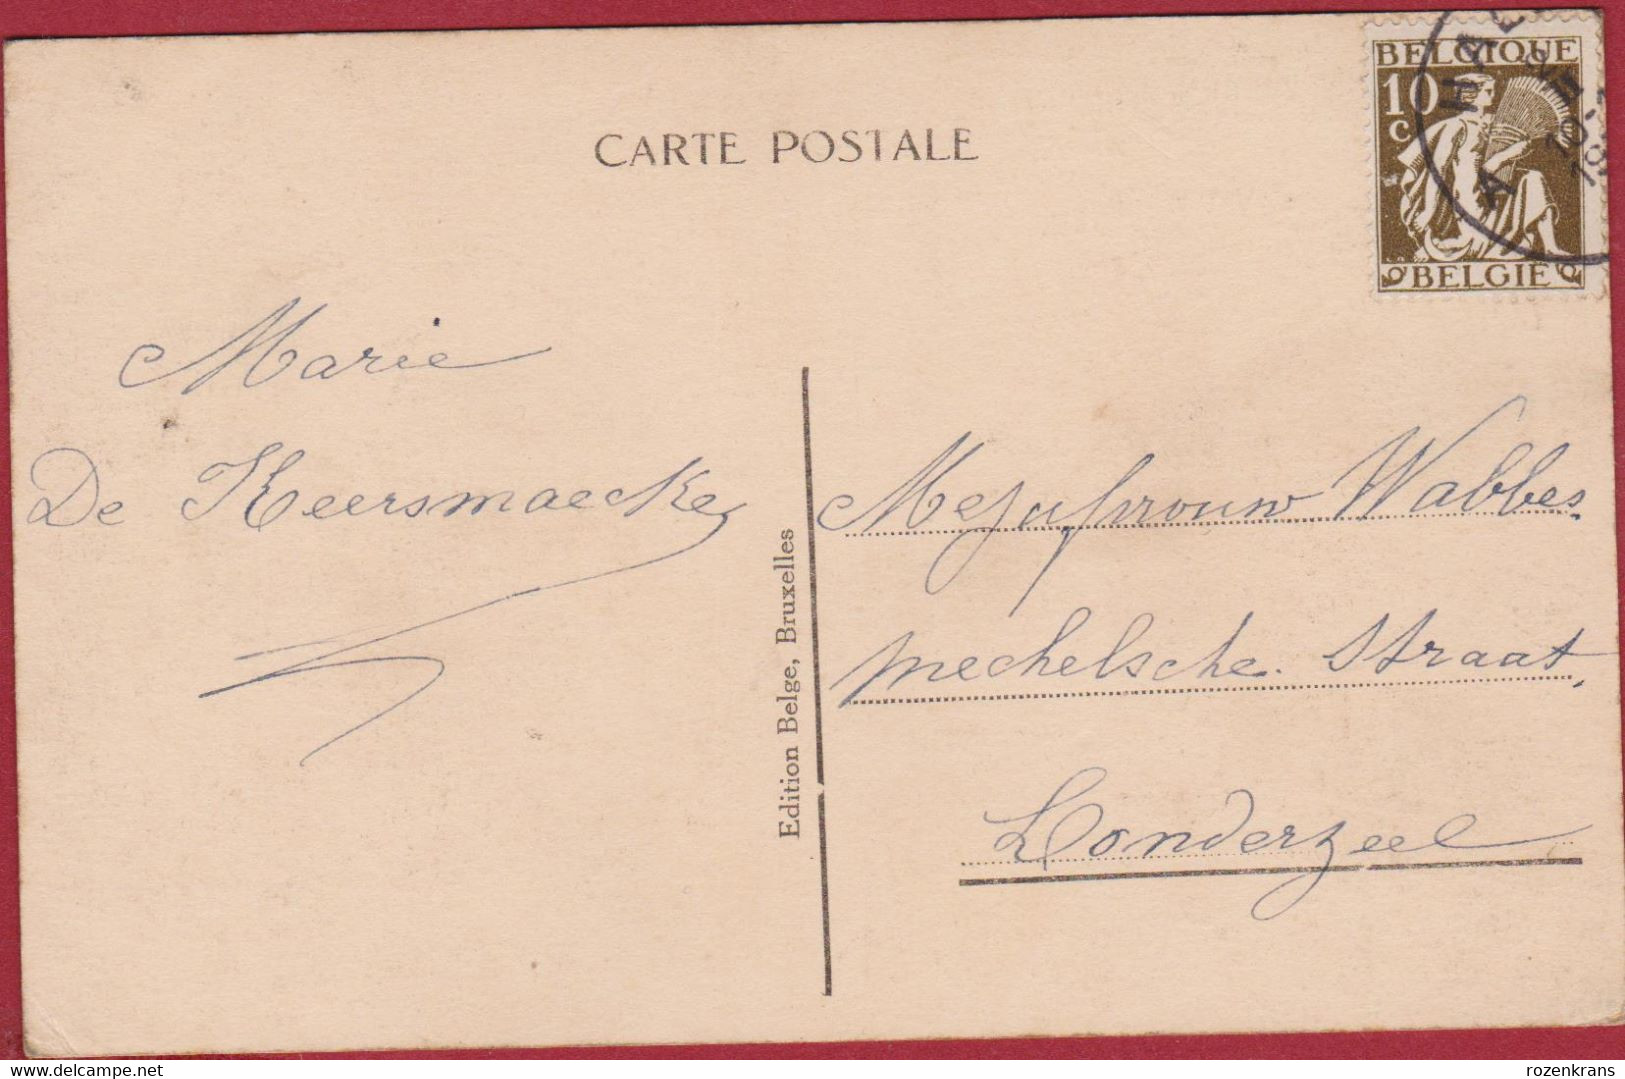 CARTE POSTALE
BELGIQUE
10
c
BELGIË
Marie
De Keersmaecker
Mejufrouw Wabbes.
mechelsche. Straat,
Londerzeel
Edition Belge, Bruxelles
delcampe.net
rozenkrans